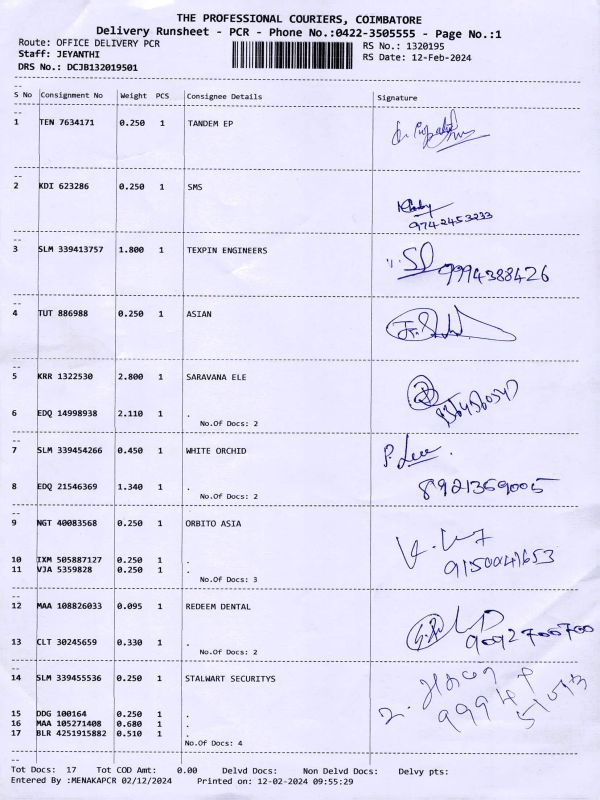 THE PROFESSIONAL COURIERS, COIMBATORE
Delivery Runsheet - PCR - Phone No.:0422-3505555 - Page No.:1
Route: OFFICE DELIVERY PCR
RS No.: 1320195
Staff: JEYANTHI
RS Date: 12-Feb-2024
DRS No.: DCJB132019501
S No Consignment No Weight PCS Consignee Details Signature
1 TEN 7634171 0.250 1 TANDEM EP
2 KDI 623286 0.250 1 SMS
9742453233
3 SLM 339413757 1.800 1 TEXPIN ENGINEERS
9994388426
4 TUT 886988 0.250 1 ASIAN
5 KRR 1322530 2.800 1 SARAVANA ELE
6 EDQ 14998938 2.110 1 .
No.Of Docs: 2
7 SLM 339454266 0.450 1 WHITE ORCHID
8 EDQ 21546369 1.340 1 .
8921369005
No.Of Docs: 2
9 NGT 40083568 0.250 1 ORBITO ASIA
10 IXM 505887127 0.250 1 .
11 VJA 5359828 0.250 1 .
No.Of Docs: 3
12 MAA 108826033 0.095 1 REDEEM DENTAL
9092700700
13 CLT 30245659 0.330 1 .
No.Of Docs: 2
14 SLM 339455536 0.250 1 STALWART SECURITYS
15 DDG 100164 0.250 1 .
16 MAA 105271408 0.680 1 .
17 BLR 4251915882 0.510 1 .
No.Of Docs: 4
Tot Docs: 17 Tot COD Amt: 0.00 Delvd Docs: Non Delvd Docs: Delvy pts:
Entered By :MENAKAPCR 02/12/2024 Printed on: 12-02-2024 09:55:29